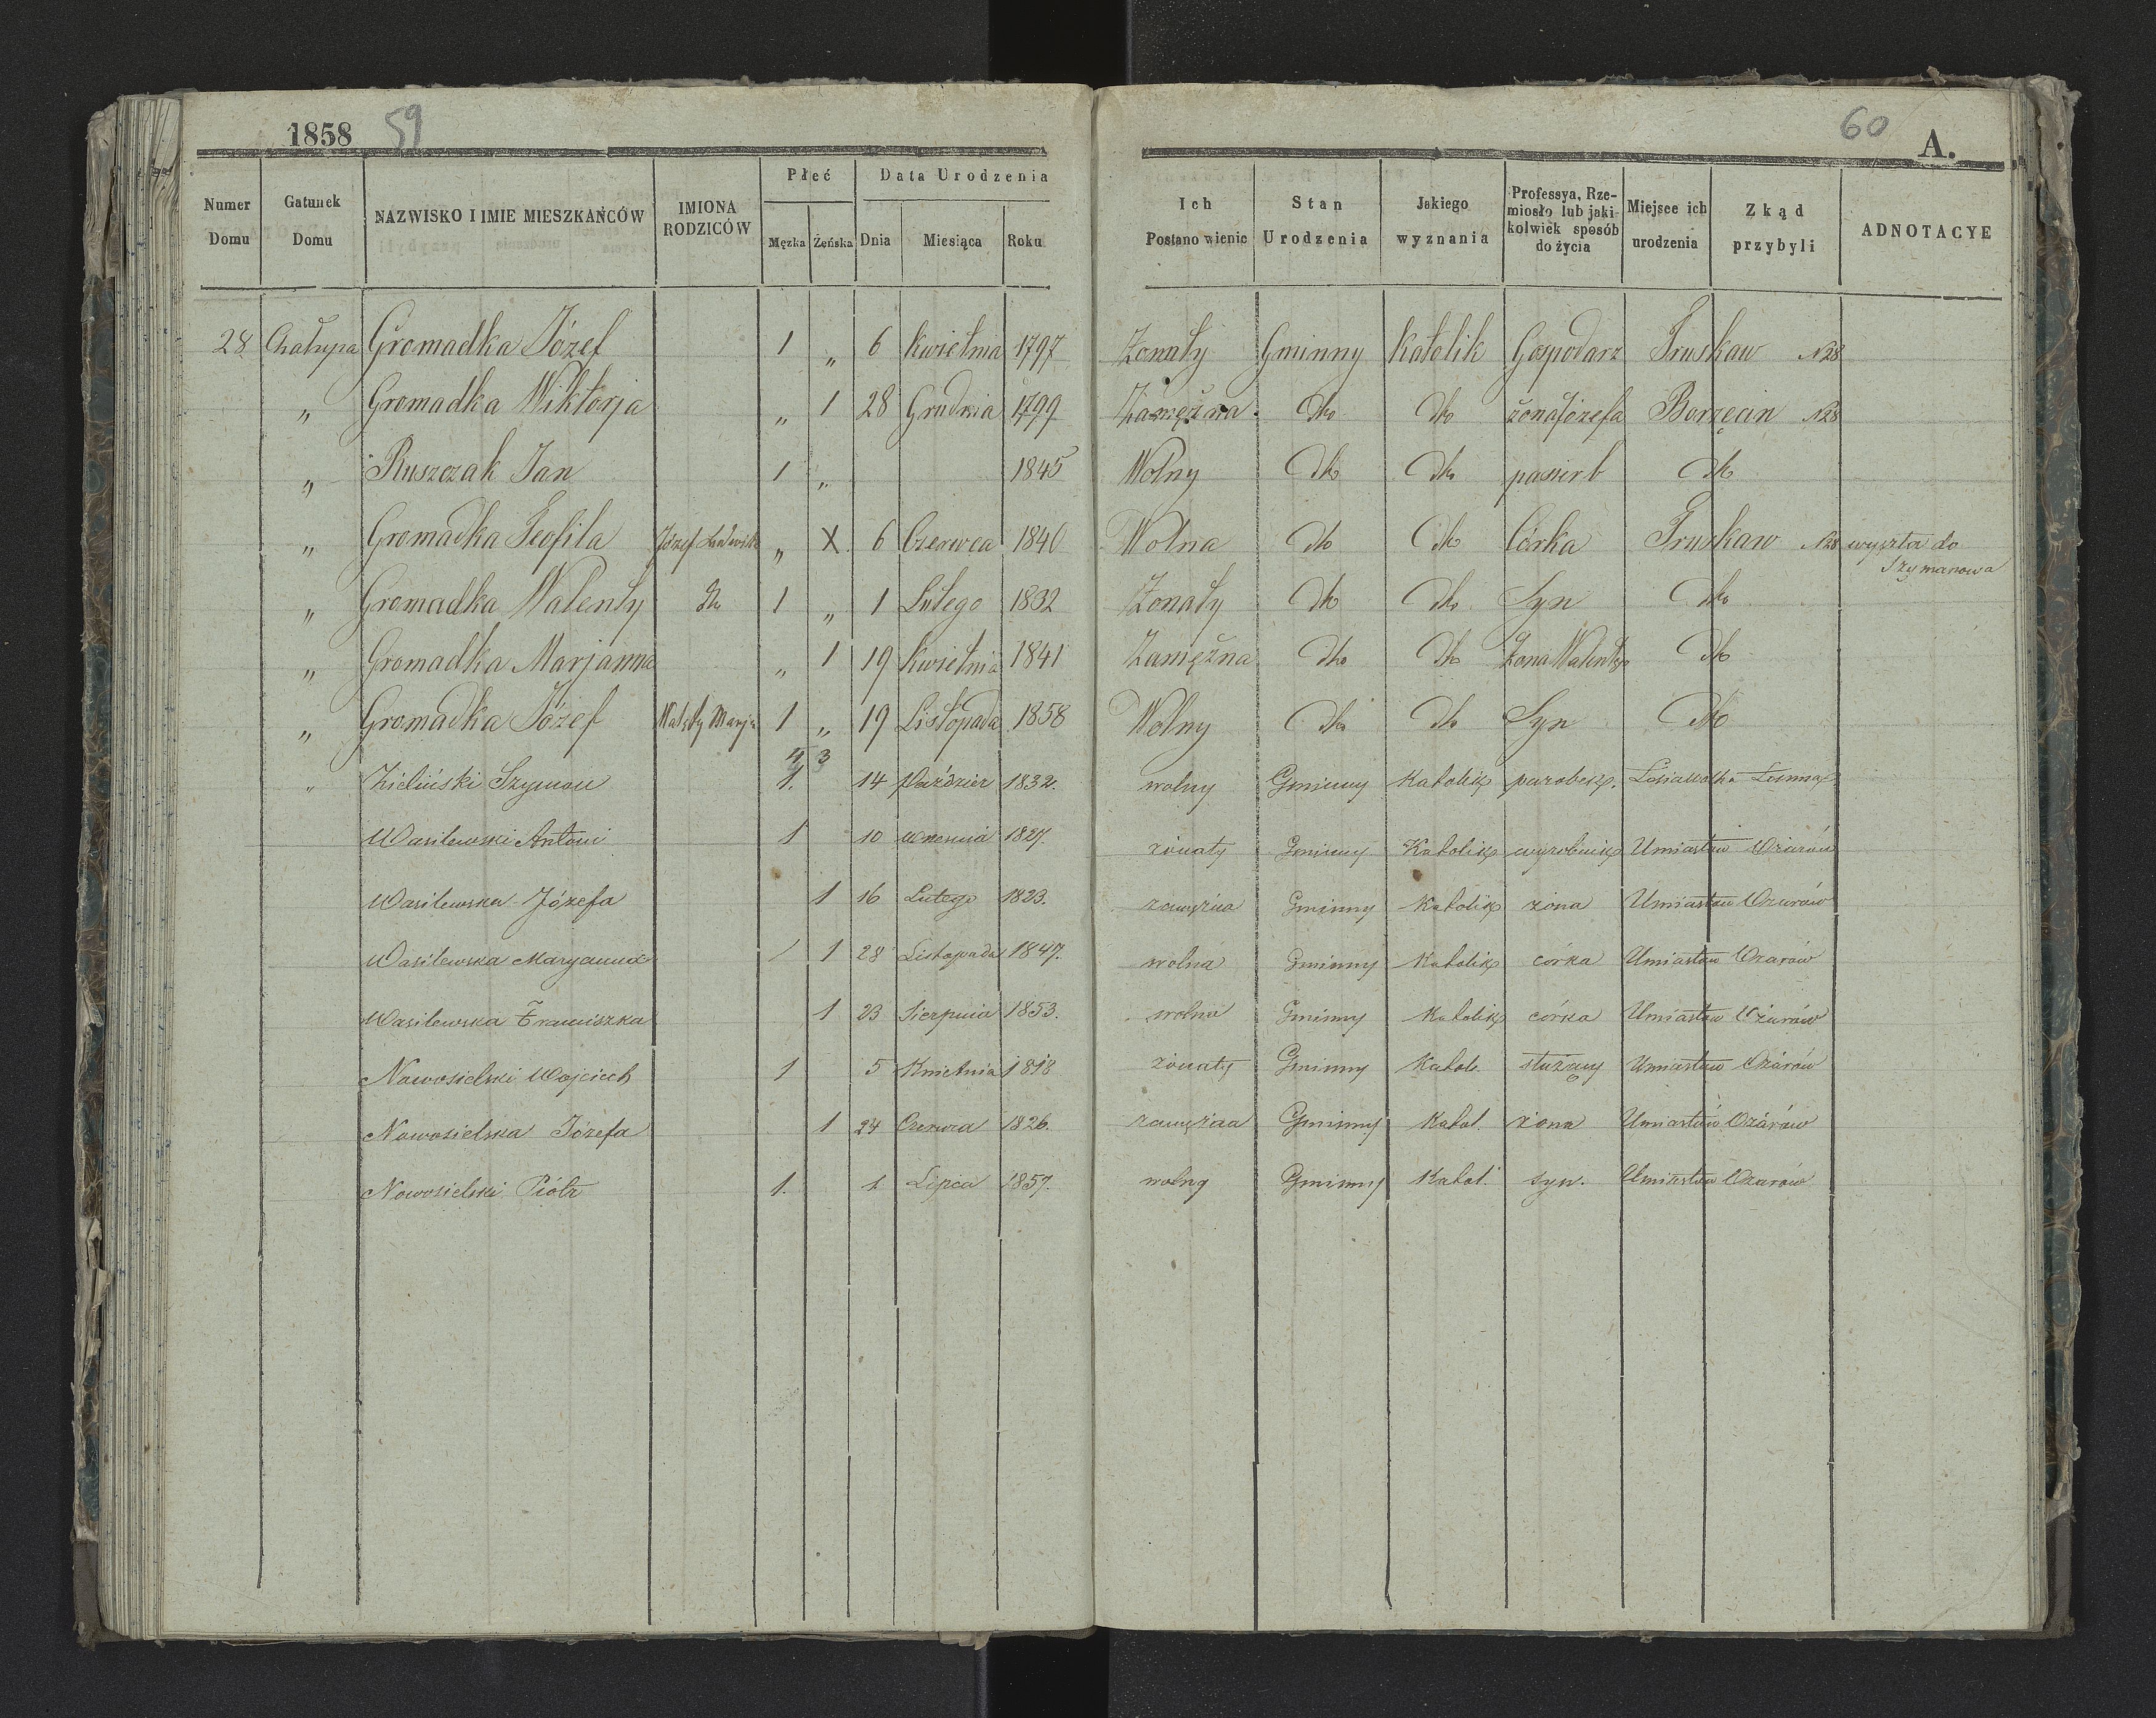 1858 59
60 A.
Numer Domu Gatunek Domu NAZWISKO I IMIE MIESZKAŃCÓW IMIONA RODZICÓW Płeć Męzka Żeńska Data Urodzenia Dnia Miesiąca Roku Ich Postanowienie Stan Urodzenia Jakiego wyznania Professya, Rzemiosło lub jakikolwiek sposób do życia Miejsce ich urodzenia Zkąd przybyli ADNOTACYE
28 Chałupa Gromadka Józef 1 „ 6 Kwietnia 1797 Żonaty Gminny Katolik Gospodarz Truskaw N28
„ Gromadka Wiktorja „ 1 28 Grudnia 1799 Zamężna dto dto żona Józefa Borzęcin N28
„ Ruszczak Jan 1 „ 1845 Wolny dto dto pasierb dto
„ Gromadka Teofila Józef Ludwika „ X 6 Czerwca 1840 Wolna dto dto Córka Truskaw N28 wyszła do
Szymanowa
„ Gromadka Walenty dto 1 „ 1 Lutego 1832 Żonaty dto dto Syn dto
„ Gromadka Marjanna „ 1 19 Kwietnia 1841 Zamężna dto dto Żona Walentego dto
„ Gromadka Józef Walenty Marja 1 „ 19 Listopada 1858 Wolny dto dto Syn dto
4 3
„ Zieliński Szymon 1. 14 Paździer 1832. wolny Gminny Katolik parobek.
Wasilewski Antoni 1 10 Wrzesnia 1827. żonaty Gminny Katolik wyrobnik Umiastów Ożarów
Wasilewska Józefa 1 16 Lutego 1823. zamężna Gminny Katolik żona Umiastów Ożarów
Wasilewska Maryanna 1 28 Listopada 1847. wolna Gminny Katolik córka Umiastów Ożarów
Wasilewska Franciszka 1 23 Sierpnia 1853. wolna Gminny Katolik córka Umiastów Ożarów
Nowosielski Wojciech 1 5 Kwietnia 1818 żonaty Gminny Katol. służący Umiastów Ożarów
Nowosielska Józefa 1 24 Czerwca 1826. zamężna Gminny Katol. żona Umiastów Ożarów
Nowosielski Piótr 1. 1 Lipca 1857. wolny Gminny Katol. syn. Umiastów Ożarów